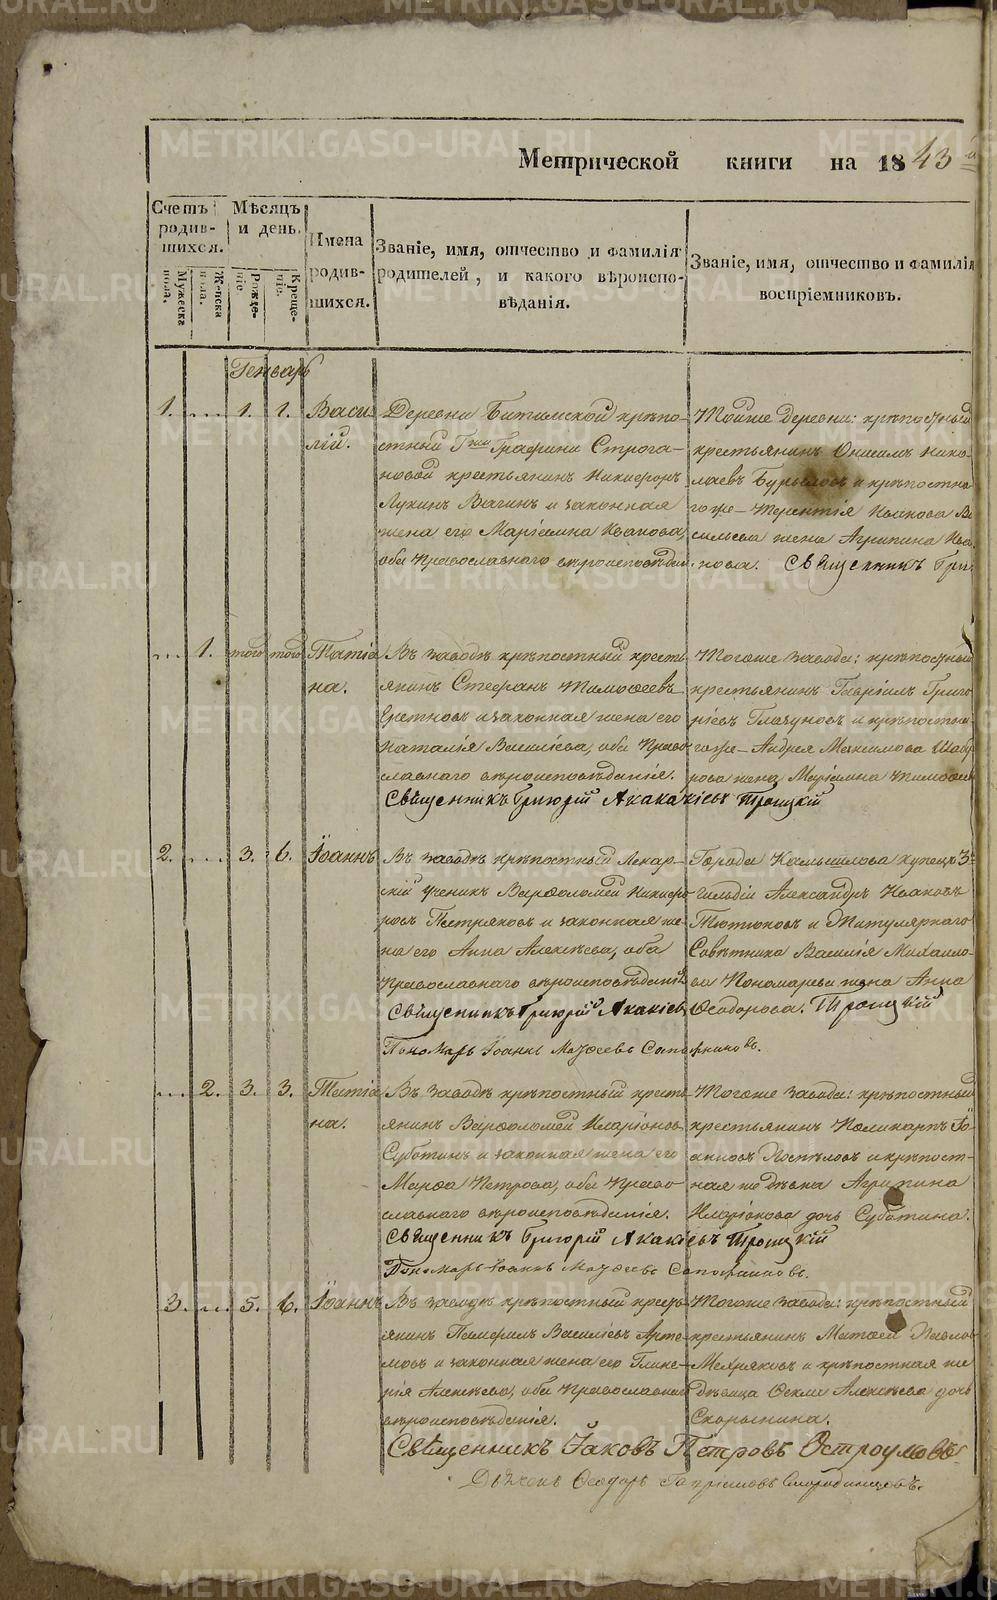 Метрической книги на 1843 й
Счетъ родив-шихся.
Мужеска пола.
Женска пола.
Мѣсяцъ и день.
Рожде-ніе
Креще-ніе.
Имена родив-шихся.
Званіе, имя, отчество и фамилія родителей, и какого вѣроиспо-вѣданія.
Званіе, имя, отчество и фамилія воспріемниковъ.
Генварь
1. .... 1. 1.
Васи-
лій.
Деревни Битимской крѣпо-
стный Г-жи Графини Строга-
новой крестьянинъ Никифоръ
Лукинъ Вагинъ и законная
жена его Маріамна Иванова,
оба Православнаго вѣроисповѣдан.
Тойже деревни: крѣпостный
крестьянинъ Онисимъ Нико-
лаевъ Бурылов и крѣпостна-
гоже Терентія Иванова Ва-
сильева жена Агрипина Ива-
нова. Священникъ Гри
.... 1. того того
Татіа
на.
Въ заводѣ крѣпостный кресть
янинъ Стефанъ Тимофеевъ
Еретновъ и законная жена его
Наталія Василіева, оба Право
славнаго вѣроисповѣданія.
Священникъ Григорій Акакіевъ Троицкій
Тогоже завода: крѣпостный
крестьянинъ Гавріилъ Григо
ріевъ Глазуновъ и крѣпостна
гоже Андрея Максимова Шаб
рова жена Маріамна Тимофеев
2. .... 3. 6.
Іоаннъ
Въ заводѣ крѣпостный Лекар-
скій ученикъ Варфоломей Никифо
ровъ Пестряковъ и законная же
на его Анна Алексѣева, оба
Православнаго вѣроисповѣданія
Священникъ Григорій Акакіевъ Троицкій
Пономарь Іоаннъ Матѳеевъ Сапожниковъ.
Города Камышлова купецъ 3й
Гильдіи Александръ Ивановъ
Тютюковъ и Титулярнаго
Совѣтника Василія Михаило-
ва Пономарева жена Анна
Ѳеодорова.
.... 2. 3. 3.
Татіа
на.
Въ заводѣ крѣпостный кресть
янинъ Варфоломей Иларіоновъ
Суботинъ и законная жена его
Марфа Петрова, оба Право
славнаго вѣроисповѣданія.
Священникъ Григорій Акакіевъ Троицкій
Пономарь Іоаннъ Матѳеевъ Сапожниковъ.
Тогоже завода: крѣпостный
крестьянинъ Поликарпъ Іо
анновъ Поспѣловъ и крѣпост-
ная же дѣвка Агрипина
Иларіонова дочь Суботина.
3. .... 5. 6.
Іоаннъ
Въ заводѣ крѣпостный кресть
янинъ Памфилъ Василіевъ Арте
мовъ и законная жена его Глике-
рія Алексѣева, оба Православнаго
вѣроисповѣданія.
Тогоже завода: крѣпостный
крестьянинъ Матѳей Павлов
Мехряковъ и крѣпостная же
дѣвица Ѳекла Алексѣева дочь
Скорынина.
Священникъ Іаковъ Петровъ Остроумовъ
Діаконъ Ѳеодоръ Гавріиловъ Смородинцовъ.
METRIKI.GASO-URAL.RU